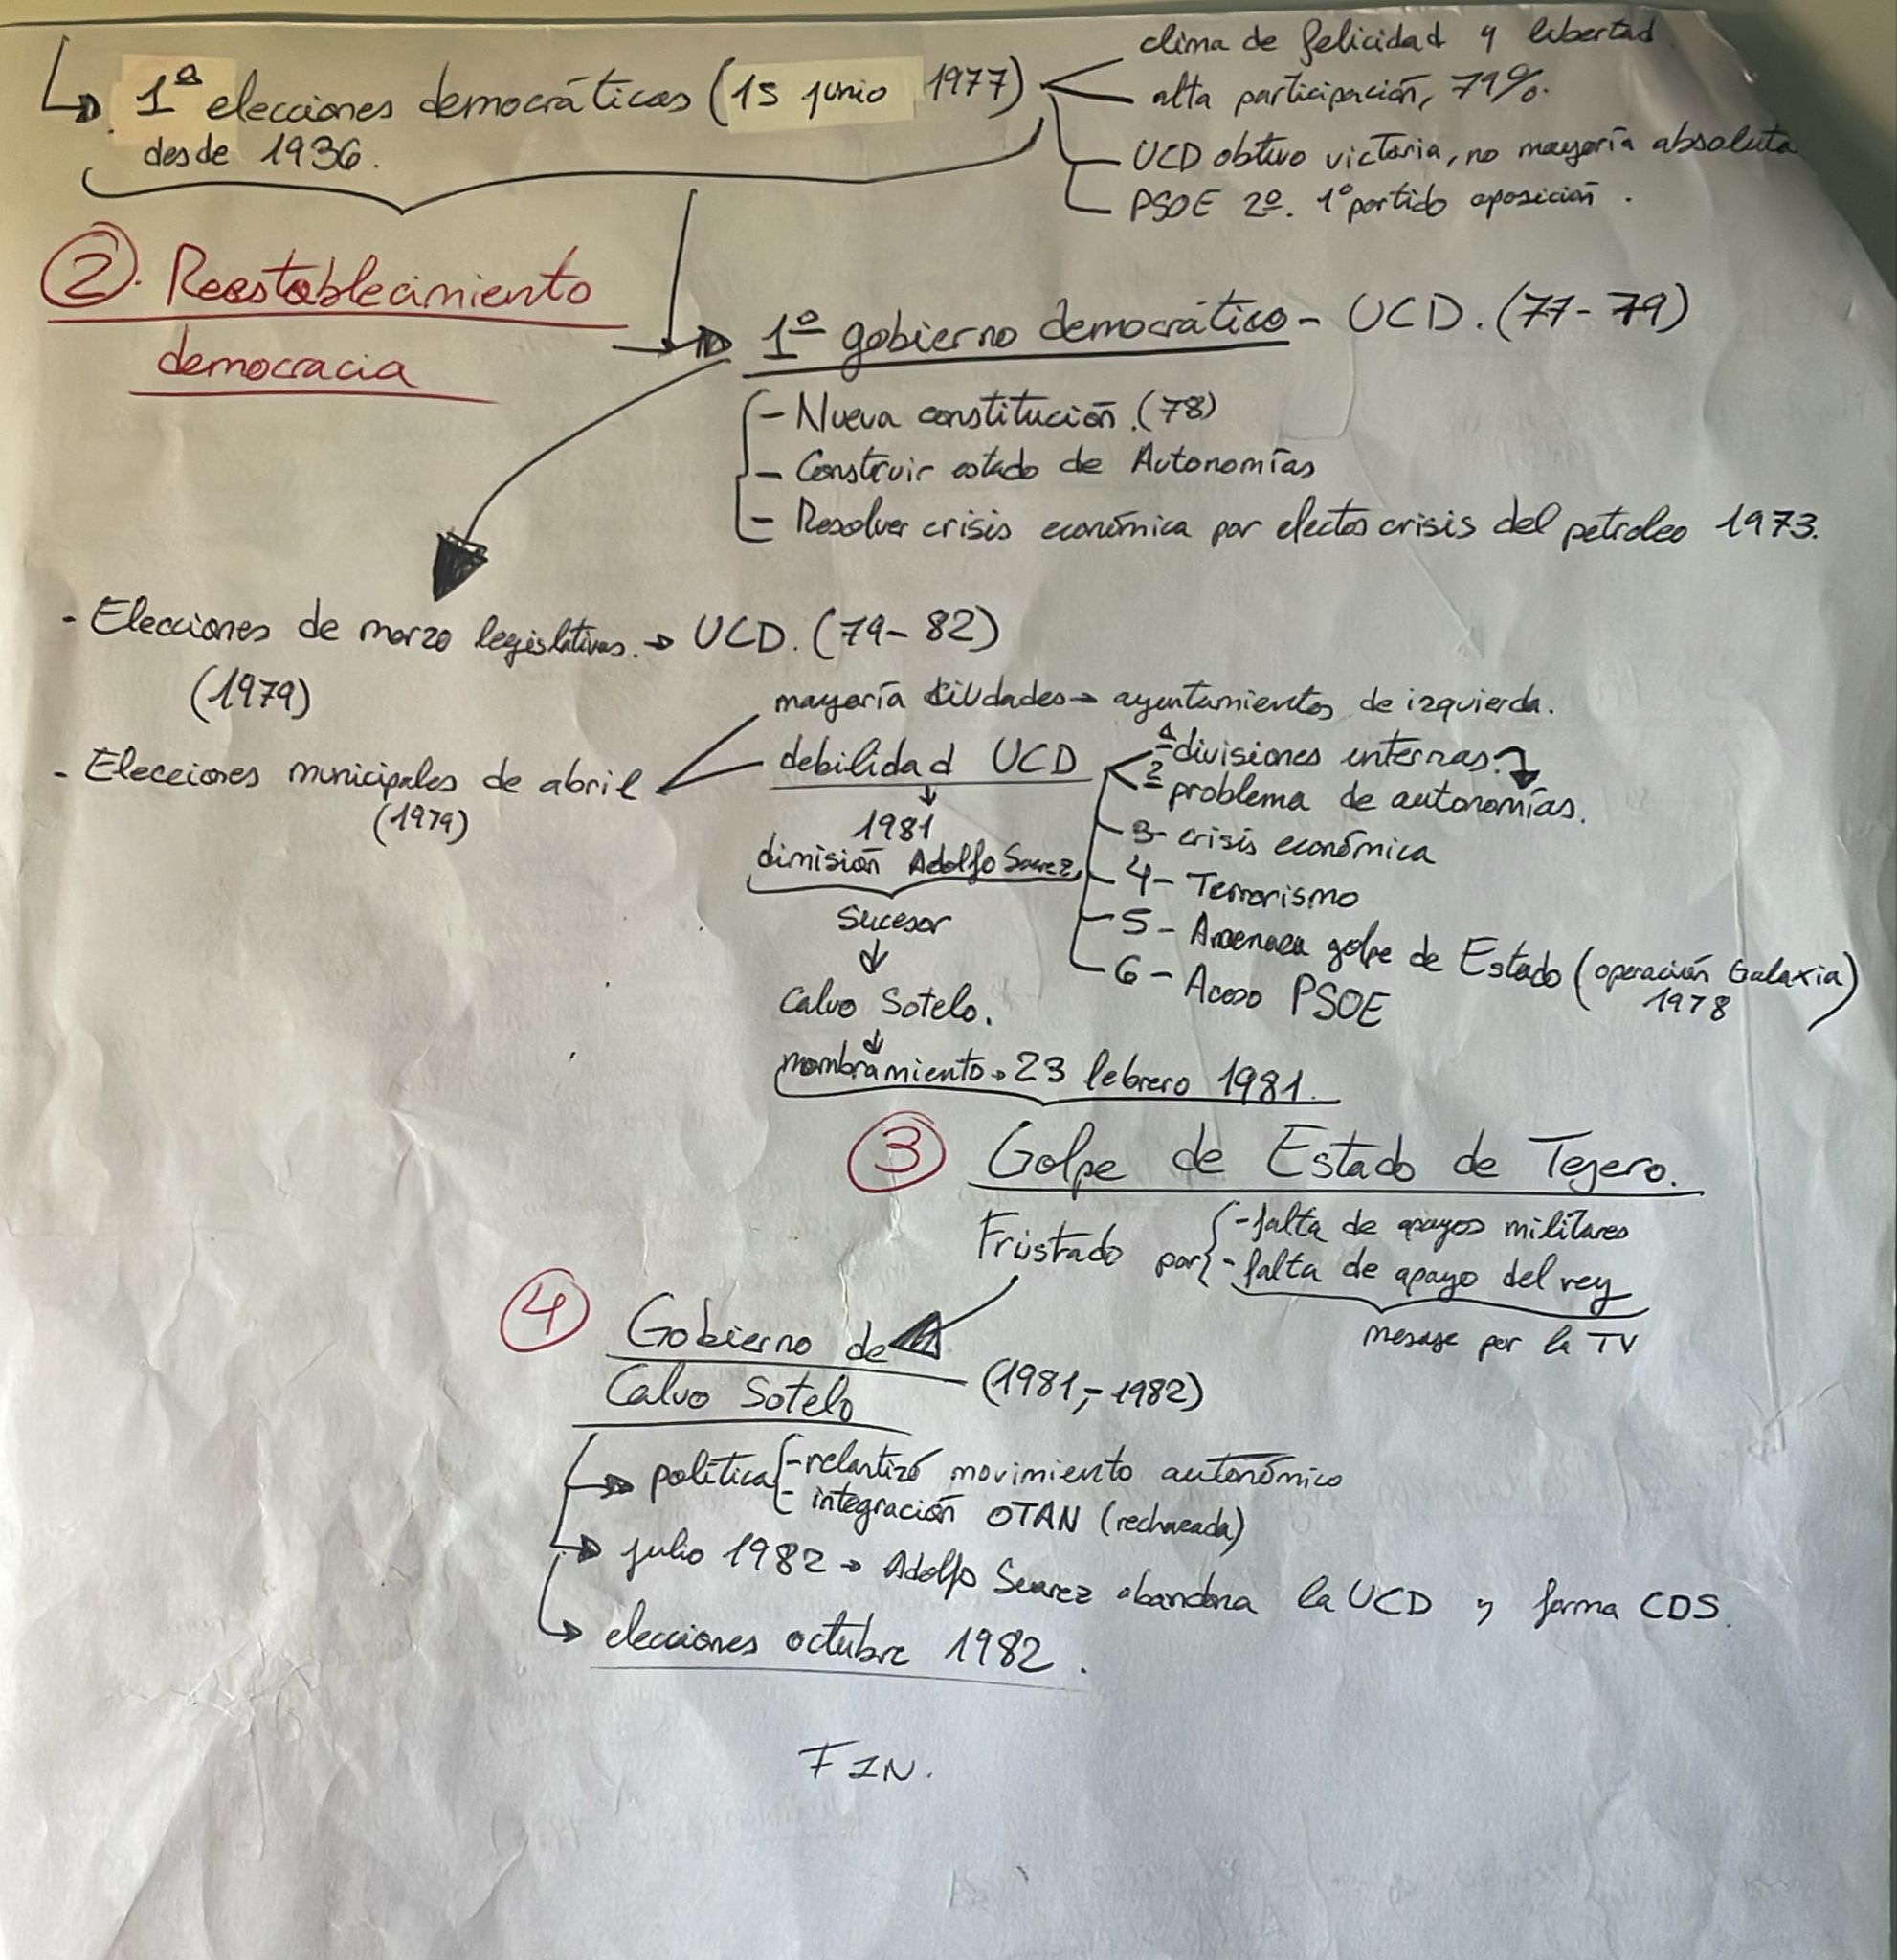 clima de felicidad y libertad.
1ª elecciones democráticas (15 junio 1977)
alta participación, 79%.
desde 1936.
UCD obtuvo victoria, no mayoría absoluta
PSOE 2º. 1º partido oposición.
2. Reestablecimiento
democracia
1º gobierno democrático - UCD. (77-79)
- Nueva constitución. (78)
- Construir estado de Autonomías
- Resolver crisis económica por efectos crisis del petroleo 1973.
- Elecciones de marzo legislativas. → UCD. (79-82)
(1979)
- Elecciones municipales de abril
(1979)
mayoría ciudades → ayuntamientos de izquierda.
debilidad UCD
1ª divisiones internas.
2ª problema de autonomías.
3- crisis económica
4- Terrorismo
5- Amenaza golpe de Estado (operación Galaxia)
1978
6- Acoso PSOE
↓
1981
dimisión Adolfo Suarez
Sucesor
↓
Calvo Sotelo.
↓
nombramiento → 23 febrero 1981.
3 Golpe de Estado de Tejero.
Frustado por
- falta de apoyos militares
- falta de apoyo del rey
mensaje por la TV
4 Gobierno de
Calvo Sotelo (1981,-1982)
política
- relantizó movimiento autonómico
- integración OTAN (rechazada)
julio 1982 → Adolfo Suarez abandona la UCD y forma CDS.
elecciones octubre 1982.
FIN.